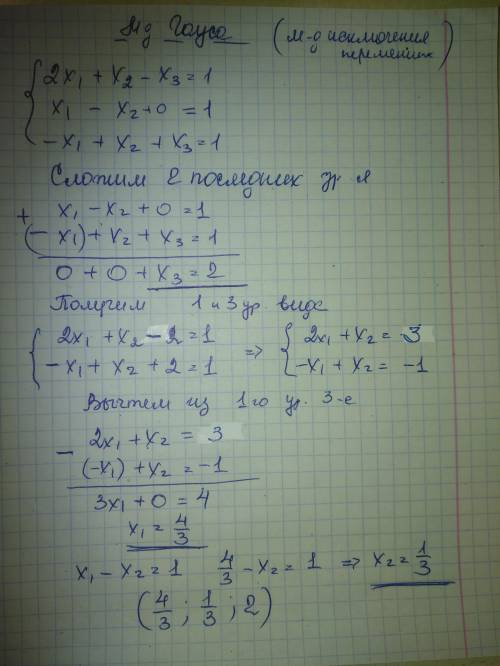 М-д Гауса (м-д исключения
переменных)
2x₁ + x₂ - x₃ = 1
x₁ - x₂ + 0 = 1
-x₁ + x₂ + x₃ = 1
Сложим 2 последних ур-я
+ x₁ - x₂ + 0 = 1
(-x₁) + x₂ + x₃ = 1
0 + 0 + x₃ = 2
Получим 1 и 3 ур. виде
{ 2x₁ + x₂ - 2 = 1 => { 2x₁ + x₂ = 3
-x₁ + x₂ + 2 = 1 -x₁ + x₂ = -1
Вычтем из 1го ур. 3-е
- 2x₁ + x₂ = 3
(-x₁) + x₂ = -1
3x₁ + 0 = 4
x₁ = 4/3
x₁ - x₂ = 1 4/3 - x₂ = 1 => x₂ = 1/3
(4/3 ; 1/3 ; 2)